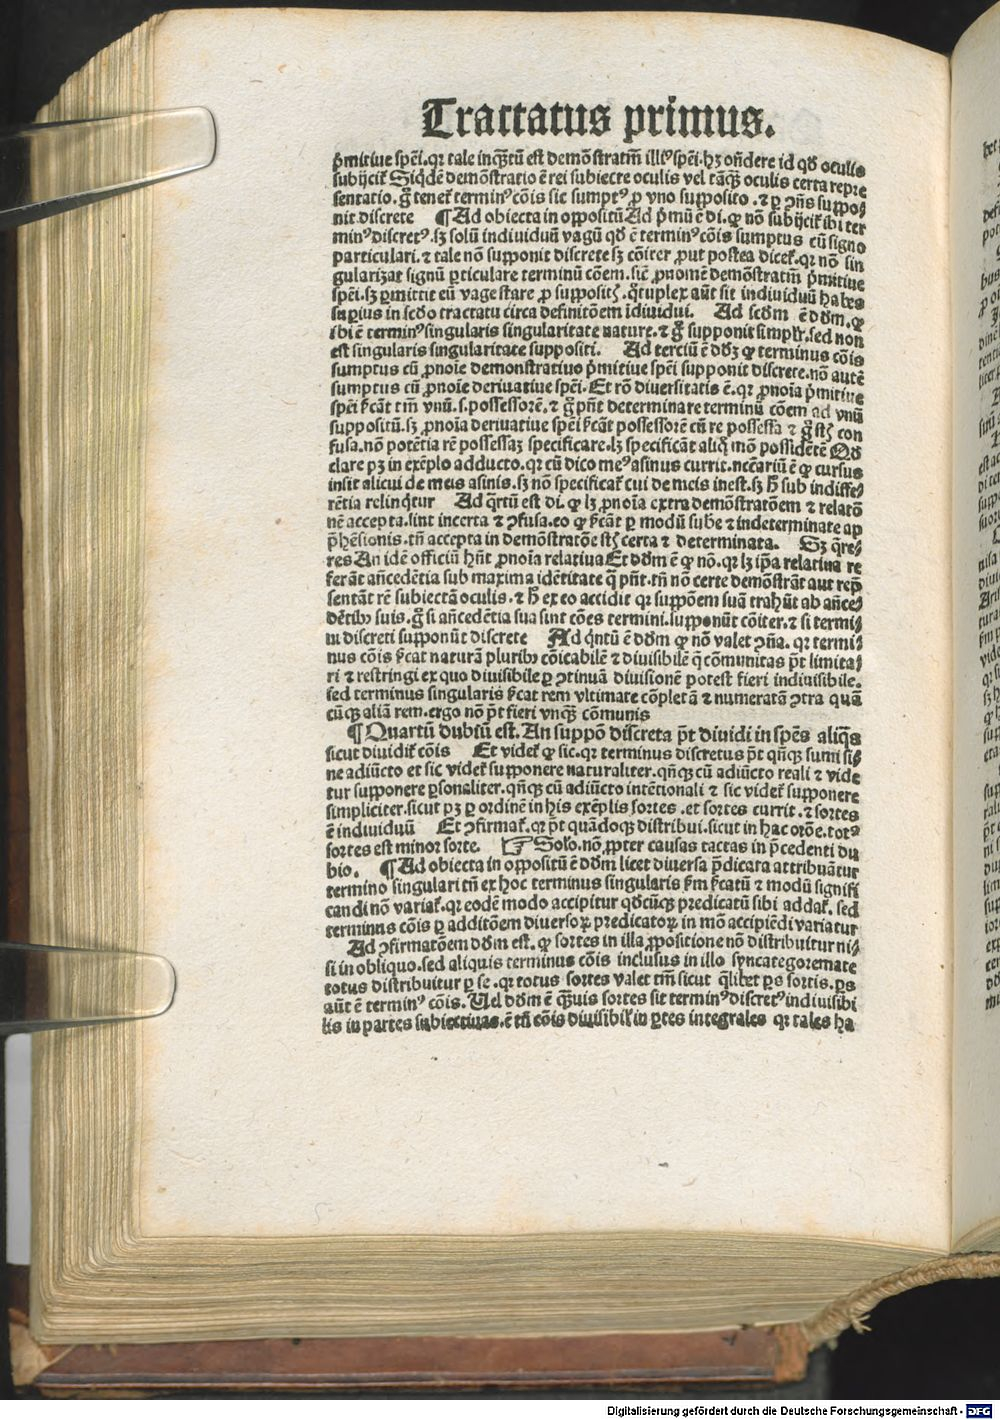 Tractatus primus.
p̄mitiue sp̄ei.qꝛ tale inqꝫtū est demōstratiū illiꝰ sp̄ei.hꝫ oñdere id qd̄ oculis
subijcit̄ Siqdē demōstratio ē rei subiecte oculis vel tāqꝫ oculis certa repre
sentatio.g̃ tenet̄ terminꝰ cōis sic sumptꝰ ꝓ vno supposito.⁊ ꝑ ↄñs suppo⸗
nit discrete ¶Ad obiecta in oppositū Ad p̄mū ē di.ꝙ nō subijcit̄ ibi ter
minꝰ discretꝰ.sꝫ solū indiuiduū vagū qd̄ ē terminꝰ cōis sumptus cū signo
particulari.⁊ tale nō supponit discrete sꝫ cōiter ꝓut postea dicet̄.qꝛ nō sin
gularizat signū ꝑticulare terminū cōem.sic̄ ꝓnomē demōstratiū p̄mitiue
sp̄ei.sꝫ ꝑmittit eū vage stare ꝓ suppositꝭ.q̄tuplex aūt sit indiuiduū habes
supius in scd̄o tractatu circa definitōem īdiuidui. Ad scd̄m ē dd̄m.ꝙ
ibi ē terminꝰ singularis singularitate nature.⁊ g̃ supponit simplr̄.sed non
est singularis singularitate suppositi. Ad terciū ē dd̄ꝫ ꝙ terminus cōis
sumptus cū ꝓnoīe demonstratiuo p̄mitiue sp̄ei supponit discrete.nō autē
sumptus cū ꝓnoīe deriuatiue sp̄ei.Et rō diuersitatis ē.qꝛ ꝓnoīa p̄mitiue
sp̄ei s̄cāt tm̄ vnū.s.possessorē.⁊ g̃ pn̄t determinare terminū cōem ad vnū
suppositū.sꝫ ꝓnoīa deriuatiue sp̄ei s̄cāt possessorē cū re possessa ⁊ g̃ stꝭ con
fusa.nō potētia rē possessaꝫ specificare.lꝫ specificāt aliq̄ mō possidētē Qd̄
clare pꝫ in exēplo adducto.qꝛ cū dico meꝰ asinus currit.nccāriū ē ꝙ cursus
insit alicui de meis asinis.sꝫ nō specificat̄ cui de meis inest.sꝫ h̄ sub indiffe⸗
rētia relinq̄tur Ad q̄rtū est di.ꝙ lꝫ ꝓnoīa extra demōstratōem ⁊ relatō
nē accepta.sint incerta ⁊ ↄfusa.eo ꝙ s̄cāt ꝑ modū sube ⁊ indeterminate ap
p̄hēsionis.tn̄ accepta in demōstratōe stꝭ certa ⁊ determinata. Sꝫ q̄re⸗
res An idē officiū hn̄t ꝓnoīa relatiua Et dd̄m ē ꝙ nō.qꝛ lꝫ ip̄a relatiua re
ferāt añcedētia sub maxima idētitate q̄ pn̄t.tn̄ nō certe demōstrāt aut rep̄
sentāt rē subiectā oculis.⁊ h̄ ex eo accidit qꝛ suppōem suā trahūt ab añce⸗
dētibꝰ suis.g̃ si añcedētia sua sint cōes termini.supponūt cōiter.⁊ si termi⸗
ni discreti supponūt discrete Ad q̄ntū ē dd̄m ꝙ nō valet ↄña.qꝛ termi⸗
nus cōis s̄cat naturā pluribꝰ cōicabilē ⁊ diuisibilē q̄ cōmunitas pt̄ limita⸗
ri ⁊ restringi ex quo diuisibile ꝑ ↄtinuā diuisionē potest fieri indiuisibile.
sed terminus singularis s̄cat rem vltimate cōpletā ⁊ numeratā ↄtra quā
cūqꝫ aliā rem.ergo nō pt̄ fieri vnqꝫ cōmunis
¶Quartū dubiū est.An suppō discreta pt̄ diuidi in sp̄es aliqꝫs
sicut diuidit̄ cōis Et videt̄ ꝙ sic.qꝛ terminus discretus pt̄ qn̄qꝫ sumi si⸗
ne adiūcto et sic videt̄ supponere naturaliter.qn̄qꝫ cū adiūcto reali ⁊ vide
tur supponere ꝑsonaliter.qn̄qꝫ cū adiūcto intētionali ⁊ sic videt̄ supponere
simpliciter.sicut pꝫ ꝑ ordinē in his exēplis sortes.et sortes currit.⁊ sortes
ē indiuiduū Et ↄfirmat̄.qꝛ pt̄ quādoqꝫ distribui.sicut in hac orōe.totꝰ
sortes est minor sorte. ☞ Solo.nō.ꝓpter causas tactas in p̄cedenti du
bio. ¶Ad obiecta in oppositū ē dd̄m licet diuersa p̄dicata attribuātur
termino singulari tn̄ ex hoc terminus singularis s̄m s̄catū ⁊ modū signifi
candi nō variat̄.qꝛ eodē modo accipitur qd̄cūqꝫ predicatū sibi addat̄.sed
terminus cōis ꝑ additōem diuersoꝝ predicatoꝝ in mō accipiēdi variatur
Ad ↄfirmatōem dd̄m est.ꝙ sortes in illa ꝓpositione nō distribuitur ni⸗
si in obliquo.sed aliquis terminus cōis inclusus in illo syncategoremate
totus distribuitur ꝑ se.qꝛ totus sortes valet tm̄ sicut q̄libet ps sortis.ps
aūt ē terminꝰ cōis.Uel dd̄m ē qꝫuis sortes sit terminꝰ discretꝰ indiuisibi
lis in partes subiectiuas.ē tn̄ cōis diuisibil̄ in ꝑtes integrales qꝛ tales ha
Digitalisierung gefördert durch die Deutsche Forschungsgemeinschaft - DFG